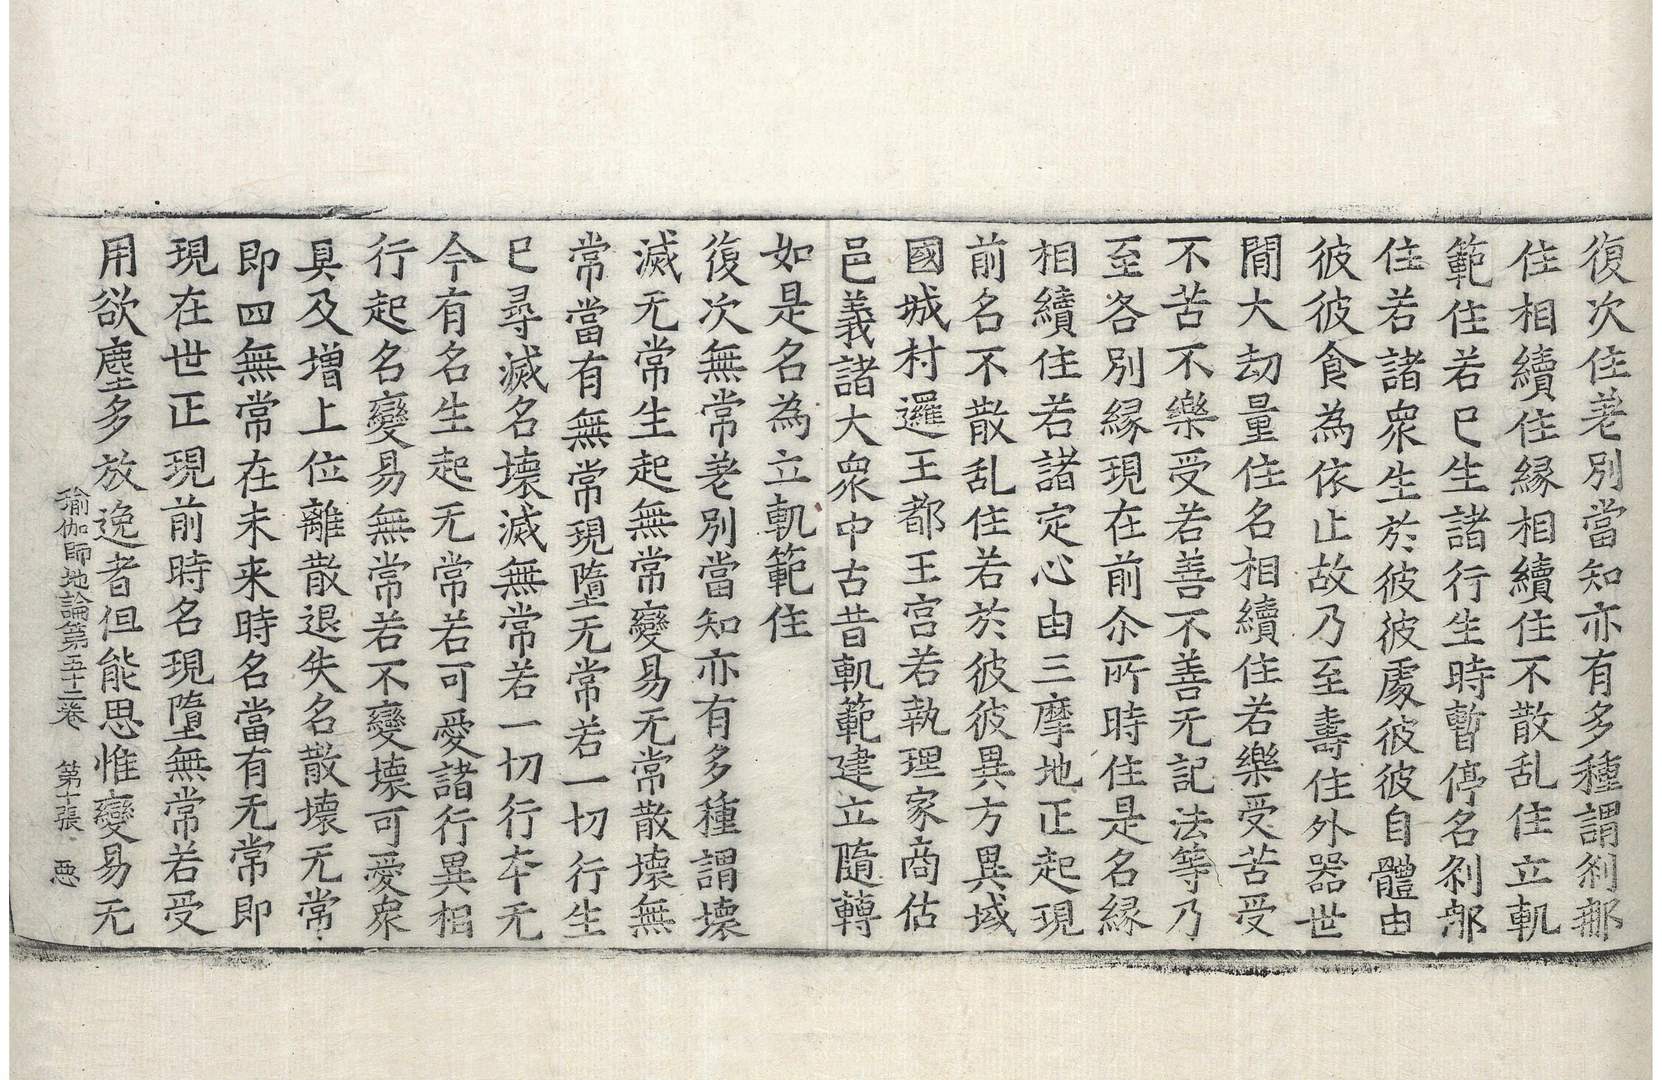 復次住差別當知亦有多種謂剎那
住相續住緣相續住不散乱住立軌
範住若已生諸行生時暫停名剎那
住若諸衆生於彼彼處彼彼自體由
彼彼食為依止故乃至壽住外器世
間大劫量住名相續住若樂受苦受
不苦不樂受若善不善无記法等乃
至各別緣現在前尒所時住是名緣
相續住若諸定心由三摩地正起現
前名不散乱住若於彼彼異方異域
國城村邏王都王宮若執理家商估
邑義諸大衆中古昔軌範建立隨轉
如是名為立軌範住
復次無常差別當知亦有多種謂壞
滅无常生起無常變易无常散壞無
常當有無常現墮无常若一切行生
已尋滅名壞滅無常若一切行本无
今有名生起无常若可愛諸行異相
行起名變易無常若不變壞可愛衆
具及增上位離散退失名散壞无常
即四無常在未来時名當有无常即
現在世正現前時名現墮無常若受
用欲塵多放逸者但能思惟變易无
瑜伽師地論第五十二卷 第十張 惡